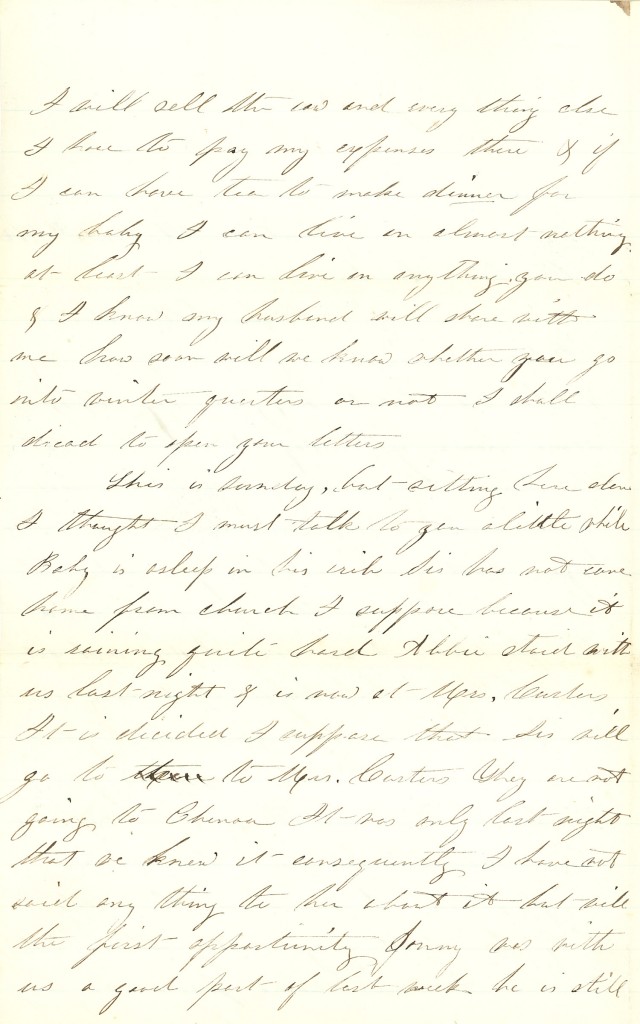 I will sell the cow and every thing else
I have to pay my expenses there & if
I can have tea to make dinner for
my baby I can live on almost nothing
at least I can live on anything you do
& I know my husband will share with
me how soon will we know whether you go
into winter quarters or not I shall
dread to open your letters
This is sunday, but sitting here alone
I thought I must talk to you a little while
Baby is asleep in his crib Sis has not come
home from church I suppose because it
is raining quite hard Abbie staid with
us last night & is now at Mrs. Carters
It is decided I suppose that Sis will
go to to Mrs. Carters They are not
going to Chenoa It was only last night
that we knew it consequently I have not
said any thing to her about it but will
the first opportunity Jonny was with
us a good part of last week he is still